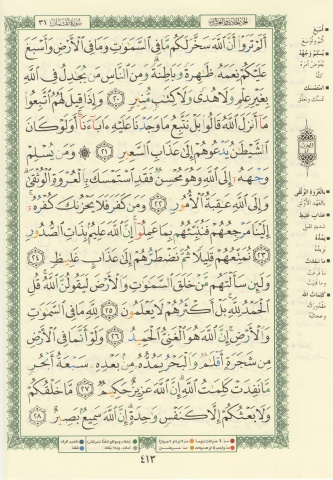 الجزء الحادي والعشرون
سورة لقمان ٣١
أَلَمْ تَرَوْا۟ أَنَّ ٱللَّهَ سَخَّرَ لَكُم مَّا فِى ٱلسَّمَٰوَٰتِ وَمَا فِى ٱلْأَرْضِ وَأَسْبَغَ
عَلَيْكُمْ نِعَمَهُۥ ظَٰهِرَةً وَبَاطِنَةً وَمِنَ ٱلنَّاسِ مَن يُجَٰدِلُ فِى ٱللَّهِ
بِغَيْرِ عِلْمٍ وَلَا هُدًى وَلَا كِتَٰبٍ مُّنِيرٍ ٢٠ وَإِذَا قِيلَ لَهُمُ ٱتَّبِعُوا۟
مَآ أَنزَلَ ٱللَّهُ قَالُوا۟ بَلْ نَتَّبِعُ مَا وَجَدْنَا عَلَيْهِ ءَابَآءَنَآ أَوَلَوْ كَانَ
ٱلشَّيْطَٰنُ يَدْعُوهُمْ إِلَىٰ عَذَابِ ٱلسَّعِيرِ ٢١ وَمَن يُسْلِمْ
وَجْهَهُۥٓ إِلَى ٱللَّهِ وَهُوَ مُحْسِنٌ فَقَدِ ٱسْتَمْسَكَ بِٱلْعُرْوَةِ ٱلْوُثْقَىٰ
وَإِلَى ٱللَّهِ عَٰقِبَةُ ٱلْأُمُورِ ٢٢ وَمَن كَفَرَ فَلَا يَحْزُنكَ كُفْرُهُۥٓ
إِلَيْنَا مَرْجِعُهُمْ فَنُنَبِّئُهُم بِمَا عَمِلُوٓا۟ إِنَّ ٱللَّهَ عَلِيمٌۢ بِذَاتِ ٱلصُّدُورِ
٢٣ نُمَتِّعُهُمْ قَلِيلًا ثُمَّ نَضْطَرُّهُمْ إِلَىٰ عَذَابٍ غَلِيظٍ ٢٤
وَلَئِن سَأَلْتَهُم مَّنْ خَلَقَ ٱلسَّمَٰوَٰتِ وَٱلْأَرْضَ لَيَقُولُنَّ ٱللَّهُ قُلِ
ٱلْحَمْدُ لِلَّهِ بَلْ أَكْثَرُهُمْ لَا يَعْلَمُونَ ٢٥ لِلَّهِ مَا فِى ٱلسَّمَٰوَٰتِ
وَٱلْأَرْضِ إِنَّ ٱللَّهَ هُوَ ٱلْغَنِىُّ ٱلْحَمِيدُ ٢٦ وَلَوْ أَنَّمَا فِى ٱلْأَرْضِ
مِن شَجَرَةٍ أَقْلَٰمٌ وَٱلْبَحْرُ يَمُدُّهُۥ مِنۢ بَعْدِهِۦ سَبْعَةُ أَبْحُرٍ
مَّا نَفِدَتْ كَلِمَٰتُ ٱللَّهِ إِنَّ ٱللَّهَ عَزِيزٌ حَكِيمٌ ٢٧ مَّا خَلْقُكُمْ
وَلَا بَعْثُكُمْ إِلَّا كَنَفْسٍ وَٰحِدَةٍ إِنَّ ٱللَّهَ سَمِيعٌۢ بَصِيرٌ ٢٨
أسبغ
أتم وأوسع
يسلم وجهه
استمسك
بالعروة الوثقى
عذاب غليظ
يمده
ما نفدت
كلمات الله
٤١٣